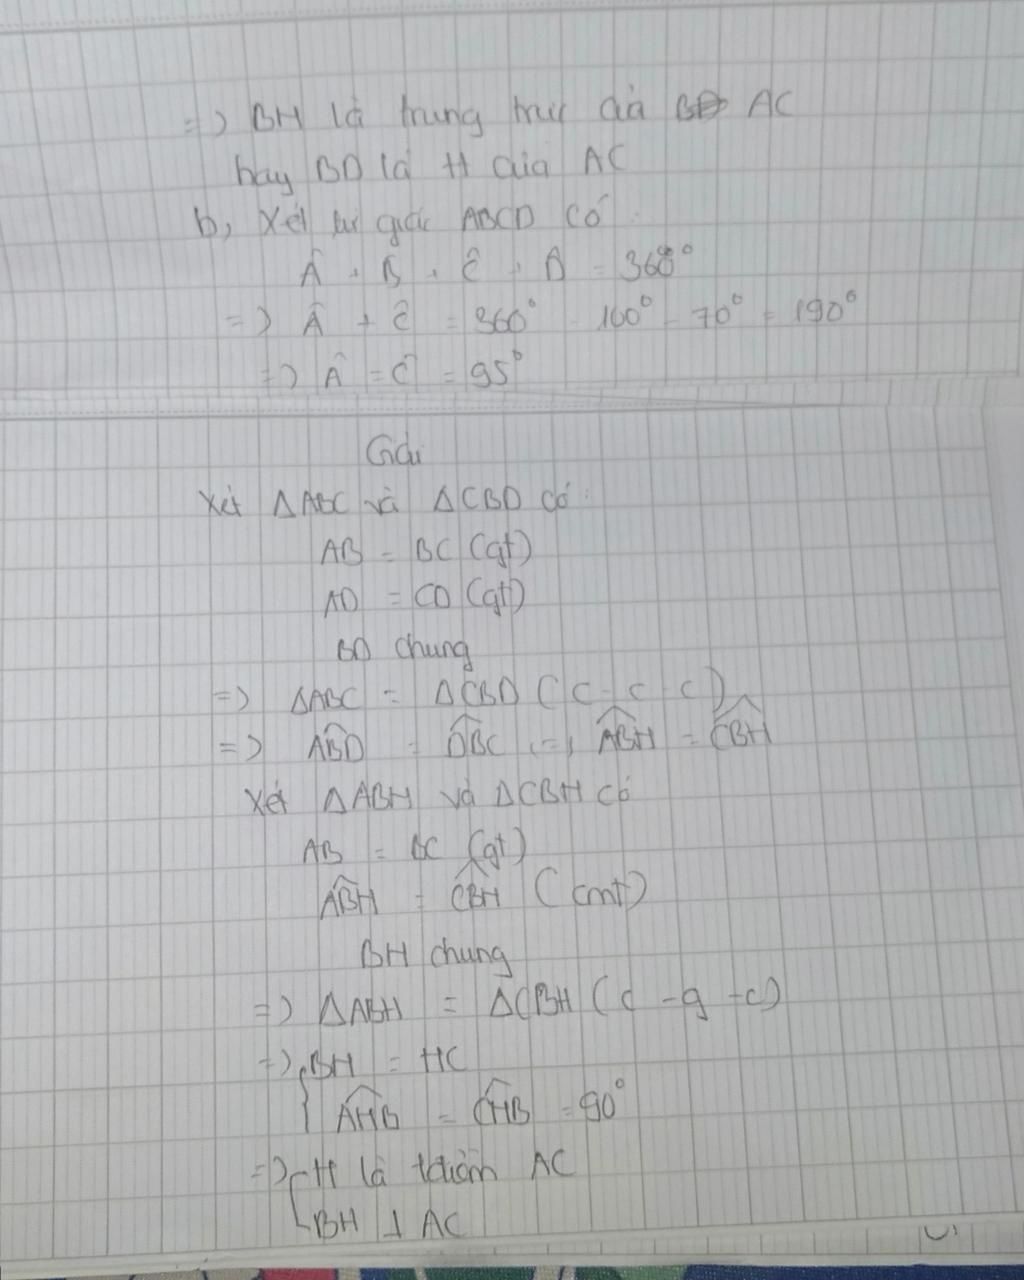 => BH là trung trực của AC
hay BD là tt của AC
b, Xét tứ giác ABCD có:
Â + B̂ + Ĉ + D̂ = 360°
=> Â + Ĉ = 360° - 100° - 70° = 190°
=> Â = Ĉ = 95°
Giải
Xét ΔABC và ΔCBD có:
AB = BC (gt)
AD = CD (gt)
BD chung
=> ΔABC = ΔCBD (c - c - c)
=> ABD = DBC => ABH = CBH
Xét ΔABH và ΔCBH có
AB = BC (gt)
ABH = CBH (cmt)
BH chung
=> ΔABH = ΔCBH (c - g - c)
=> { BH = HC
AHB = CHB = 90°
=> { H là tđiểm AC
BH ⊥ AC